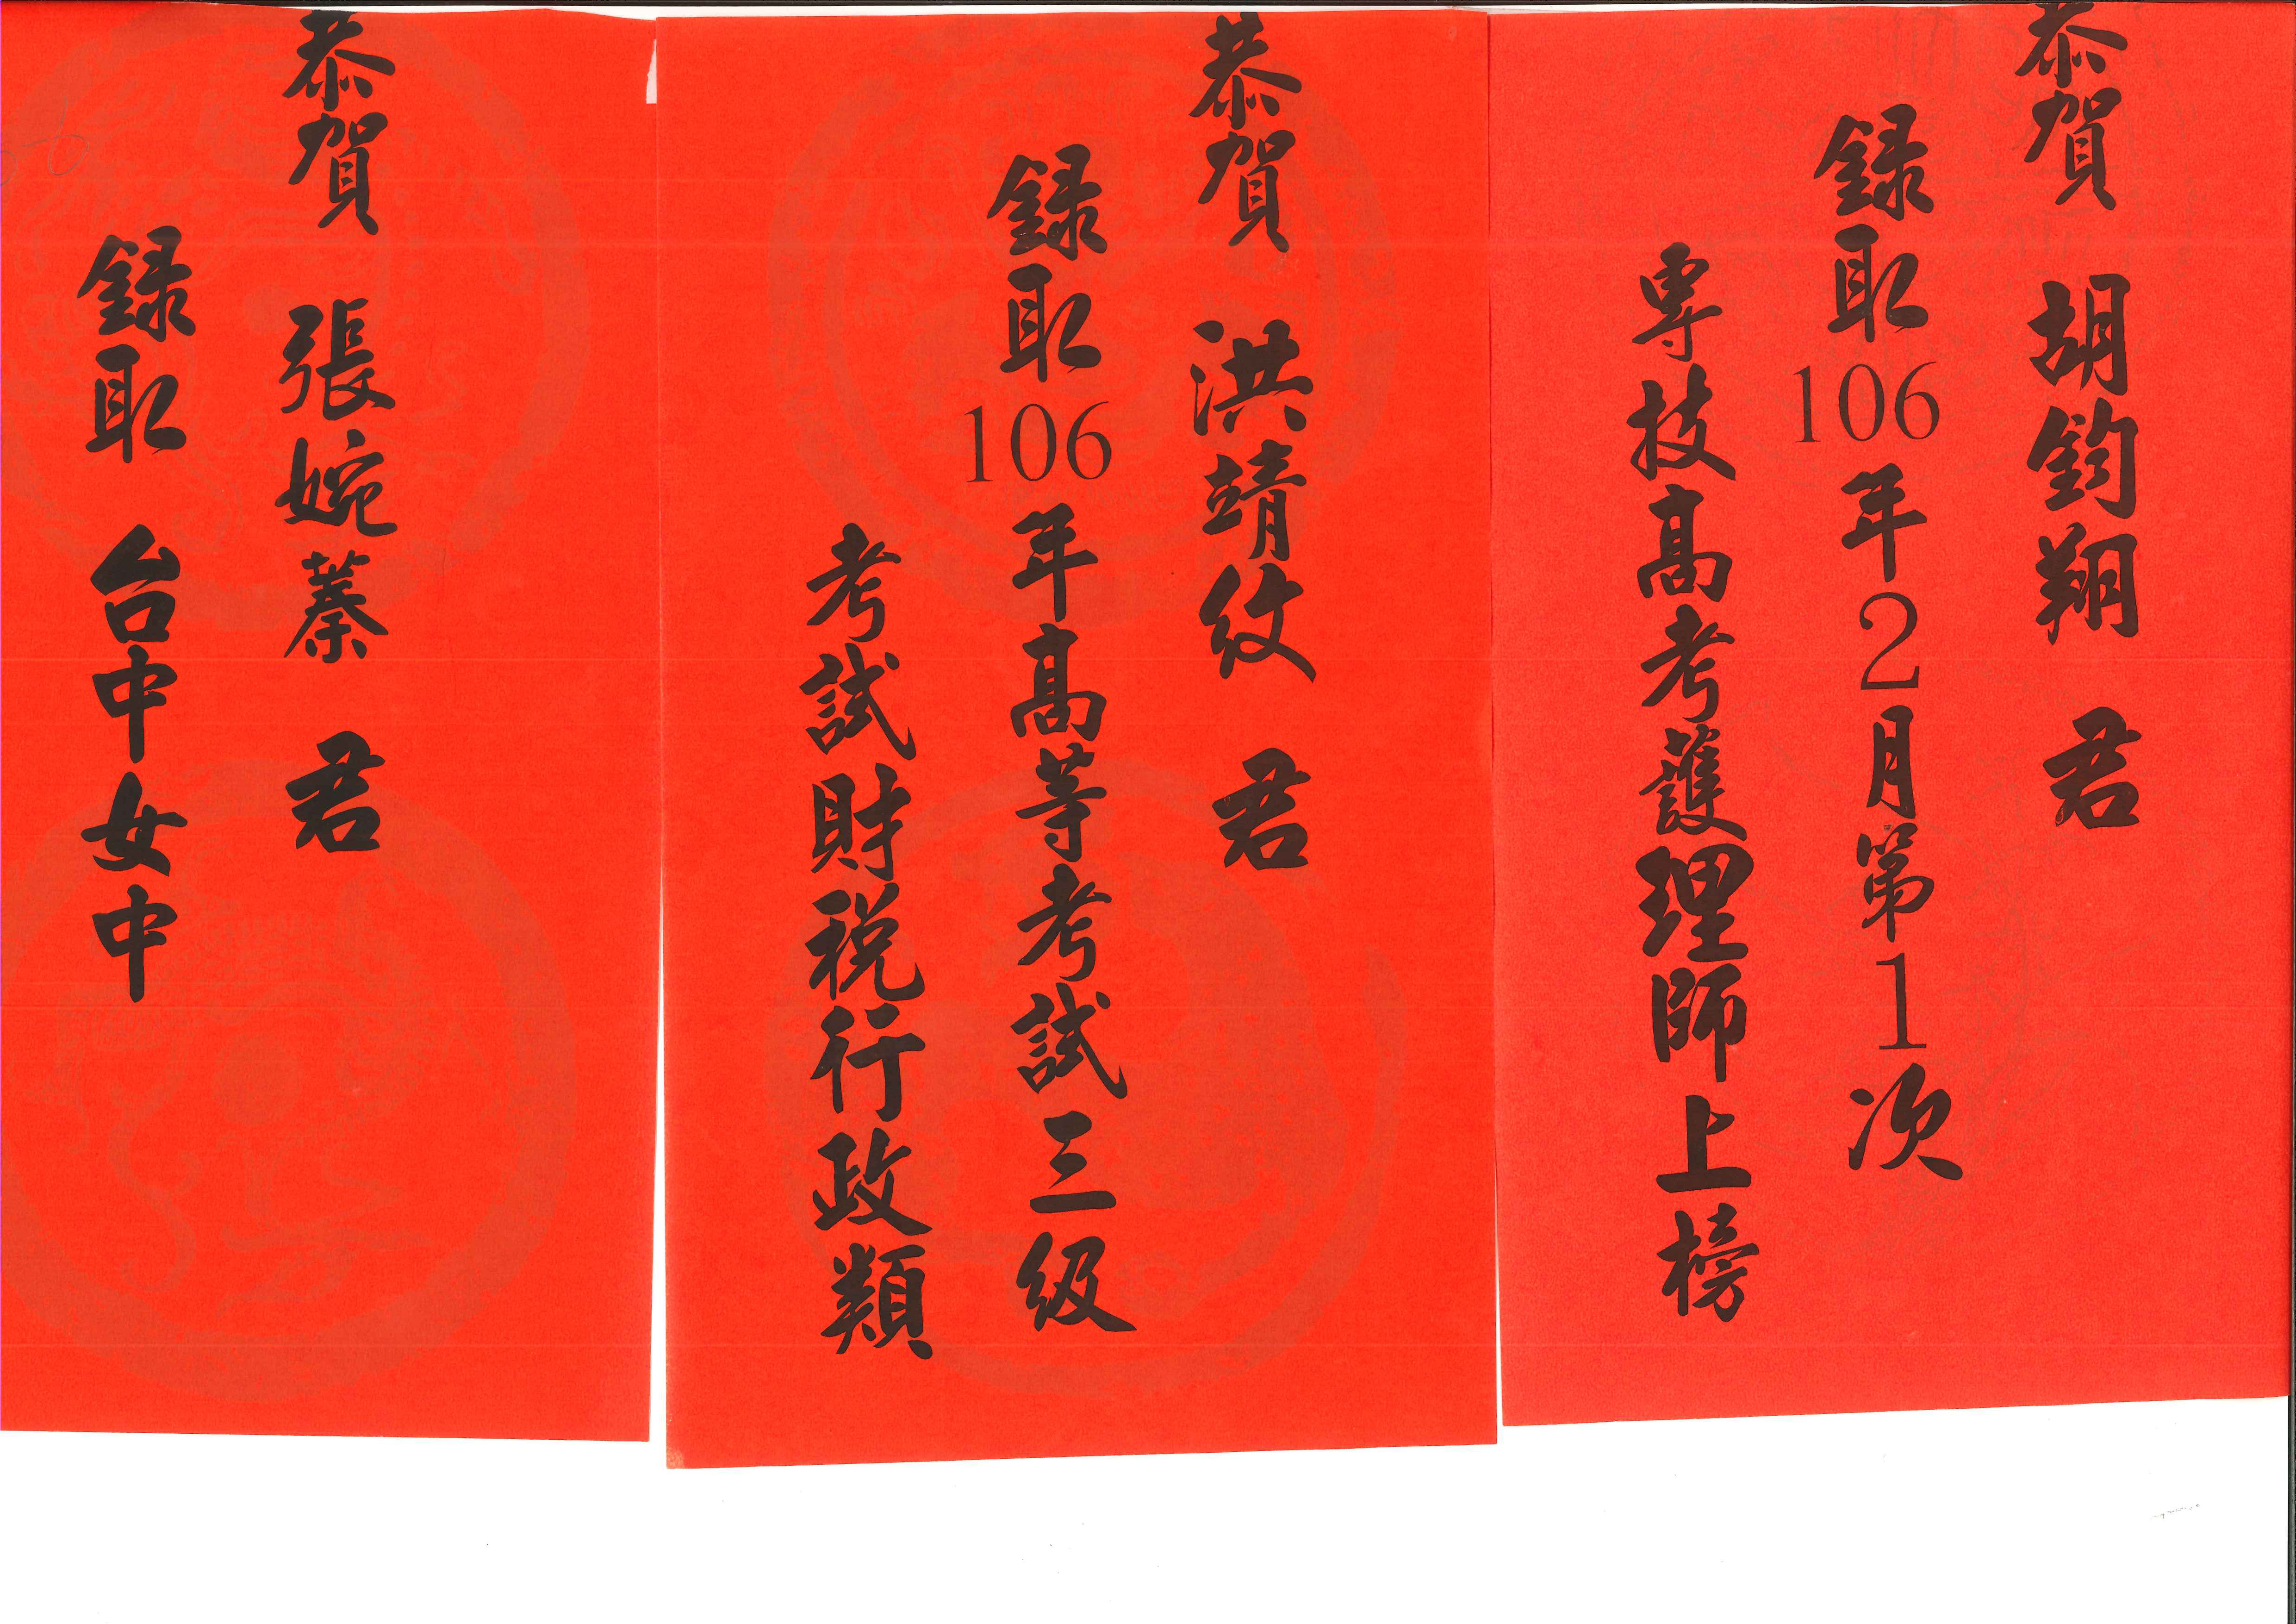 恭賀 胡鈞翔 君
錄取106年2月第1次
專技高考護理師上榜
恭賀 洪靖紋 君
錄取106年高等考試三級
考試財稅行政類
恭賀 張婉蓁 君
錄取 台中女中